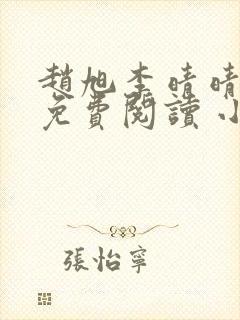 趙旭李晴晴
免費閱讀小
張怡寧